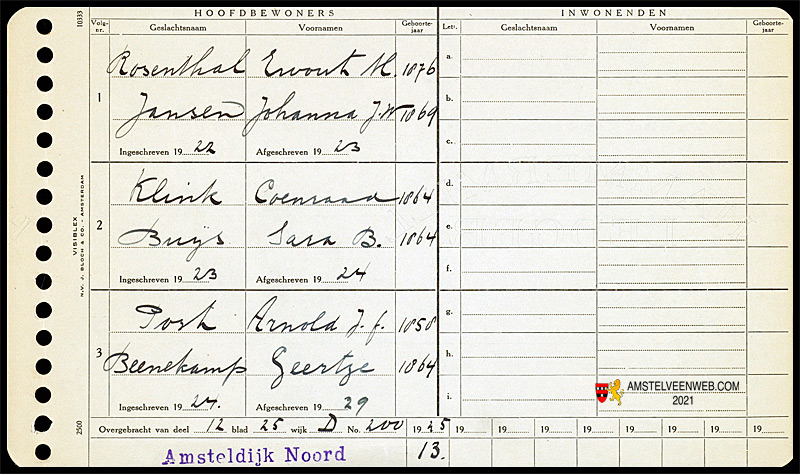 HOOFDBEWONERS INWONENDEN
Volg-nr. Geslachtsnaam Voornamen Geboorte-jaar Lett. Geslachtsnaam Voornamen Geboorte-jaar
10333
1
Rosenthal Ewout M. 1876
Jansen Johanna J.W 1869
Ingeschreven 19 22 Afgeschreven 19 23
2
Klink Coenraad 1864
Buijs Sara B. 1864
Ingeschreven 19 23 Afgeschreven 19 24
3
Post Arnold J. f. 1858
Beenekamp Geertje 1864
Ingeschreven 19 24. Afgeschreven 19 29
a.
b.
c.
d.
e.
f.
g.
h.
i.
VISIBLEX
N.V. J. BLOCH & CO. - AMSTERDAM
2500
AMSTELVEENWEB.COM
2021
Overgebracht van deel 12 blad 25 wijk D No. 200 19 25 19 19 19 19 19 19 19 19
Amsteldijk Noord 13.